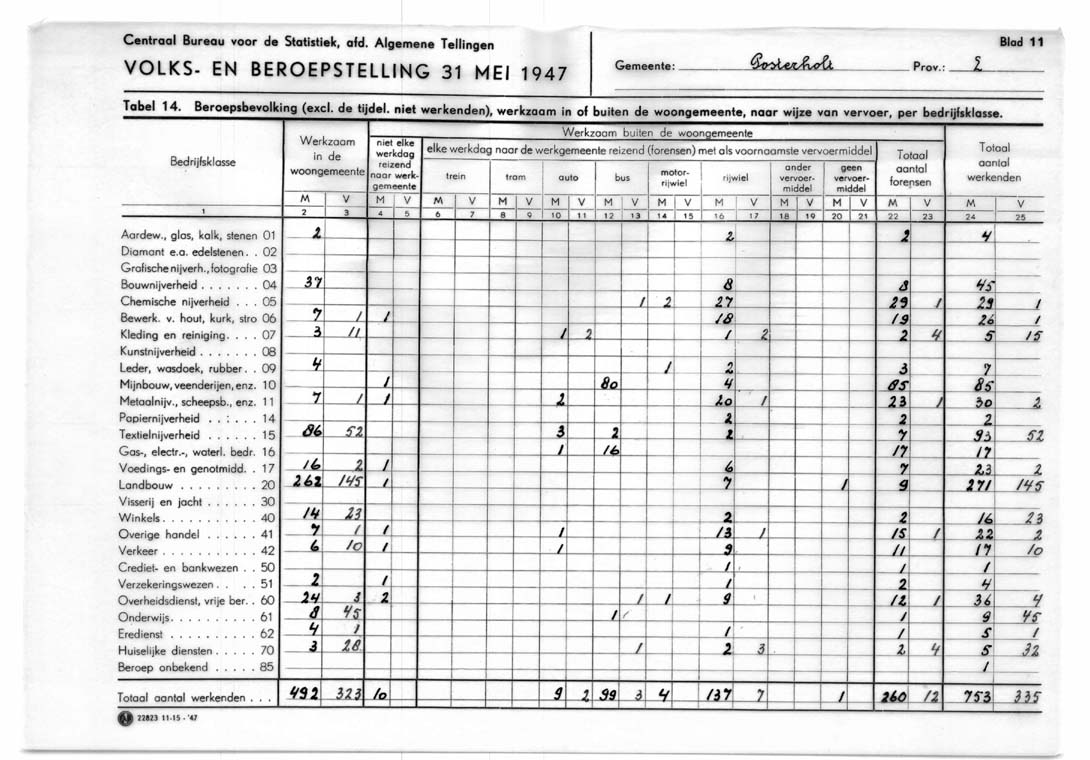 Centraal Bureau voor de Statistiek, afd. Algemene Tellingen
VOLKS- EN BEROEPSTELLING 31 MEI 1947
Blad 11
Gemeente: Posterholt Prov.: L
Tabel 14. Beroepsbevolking (excl. de tijdel. niet werkenden), werkzaam in of buiten de woongemeente, naar wijze van vervoer, per bedrijfsklasse.
Bedrijfsklasse
Werkzaam in de woongemeente
Werkzaam buiten de woongemeente
niet elke werkdag reizend naar werkgemeente
elke werkdag naar de werkgemeente reizend (forensen) met als voornaamste vervoermiddel
trein tram auto bus motor-rijwiel rijwiel ander vervoer-middel geen vervoer-middel
Totaal aantal forensen
Totaal aantal werkenden
M V M V M V M V M V M V M V M V M V M V M V M V
1 2 3 4 5 6 7 8 9 10 11 12 13 14 15 16 17 18 19 20 21 22 23 24 25
Aardew., glas, kalk, stenen 01 2 2 2 4
Diamant e.a. edelstenen . . 02
Grafische nijverh., fotografie 03
Bouwnijverheid . . . . . . . 04 37 8 8 45
Chemische nijverheid . . . 05 1 2 27 29 1 29 1
Bewerk. v. hout, kurk, stro 06 7 1 1 18 19 26 1
Kleding en reiniging. . . . 07 3 11 1 2 1 2 2 4 5 15
Kunstnijverheid . . . . . . . 08
Leder, wasdoek, rubber. . 09 4 1 2 3 7
Mijnbouw, veenderijen, enz. 10 1 80 4 85 85
Metaalnijv., scheepsb., enz. 11 7 1 1 2 20 1 23 1 30 2
Papiernijverheid . . . . . . 14 2 2 2
Textielnijverheid . . . . . . 15 86 52 3 2 2 7 93 52
Gas-, electr.-, waterl. bedr. 16 1 16 17 17
Voedings- en genotmidd. . 17 16 2 1 6 7 23 2
Landbouw . . . . . . . . . 20 262 145 1 7 1 9 271 145
Visserij en jacht . . . . . . 30
Winkels . . . . . . . . . . . 40 14 23 2 2 16 23
Overige handel . . . . . . . 41 7 1 1 1 13 1 15 1 22 2
Verkeer . . . . . . . . . . . 42 6 10 1 1 9 11 17 10
Crediet- en bankwezen . . 50 1 1 1
Verzekeringswezen . . . . 51 2 1 1 2 4
Overheidsdienst, vrije ber. . 60 24 3 2 1 1 9 12 1 36 4
Onderwijs. . . . . . . . . . 61 8 45 1 1 9 45
Eredienst . . . . . . . . . . 62 4 1 1 1 5 1
Huiselijke diensten . . . . . 70 3 28 1 2 3 2 4 5 32
Beroep onbekend . . . . . 85 1
Totaal aantal werkenden . . . 492 323 10 9 2 99 3 4 137 7 1 260 12 753 335
22823 11-15 - '47